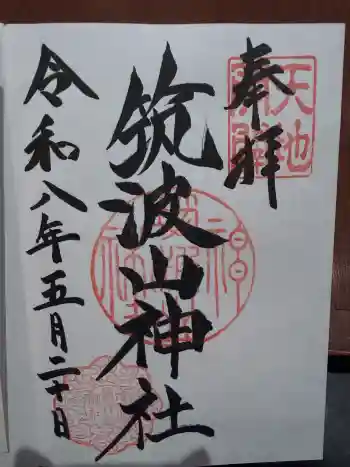 奉拝
天地開闢
筑波山神社
令和八年五月二十日